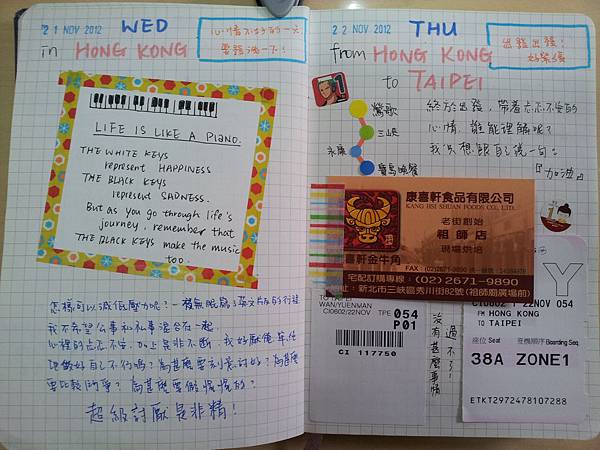 21 NOV 2012 WED
in HONG KONG
心情不好的一天
LIFE IS LIKE A PIANO.
THE WHITE KEYS
represent HAPPINESS
THE BLACK KEYS
represent SADNESS.
But as you go through life's
journey, remember that
THE BLACK KEYS make the music
too.
怎樣可以減低壓力呢?
我不希望公事和私事混合在一起
心裡的忐忑不安,加上是非不斷,我好厭倦
把做好自己不行嗎?為甚麼要
要比較 為甚麼要
超級討厭是非精!
22 NOV 2012 THU
from HONG KONG
to TAIPEI
出發出發!
好緊張
1
鶯歌
三峽
永康
終於出發,帶着忐忑不安的
心情,誰能理解呢?
我只想跟自己說一句:
『加油』
康喜軒食品有限公司
KANG HSI SHUAN FOODS CO., LTD.
老街創始
祖師店
現場烘焙
康喜軒金牛角
FAX:(02)2671-9890
宅配訂購專線:(02) 2671-9890
址:新北市三峽區秀川街82號(祖師廟廣場前)
WAN/YUENMAN
CI0602/22NOV TPE 054
P01
CI 117750
過不了!
沒有甚麼事情
Y
CI0602 22NOV 054
FM HONG KONG
TO TAIPEI
座位 Seat 登機順序 Boarding Seq.
38A ZONE1
ETKT2972478107288